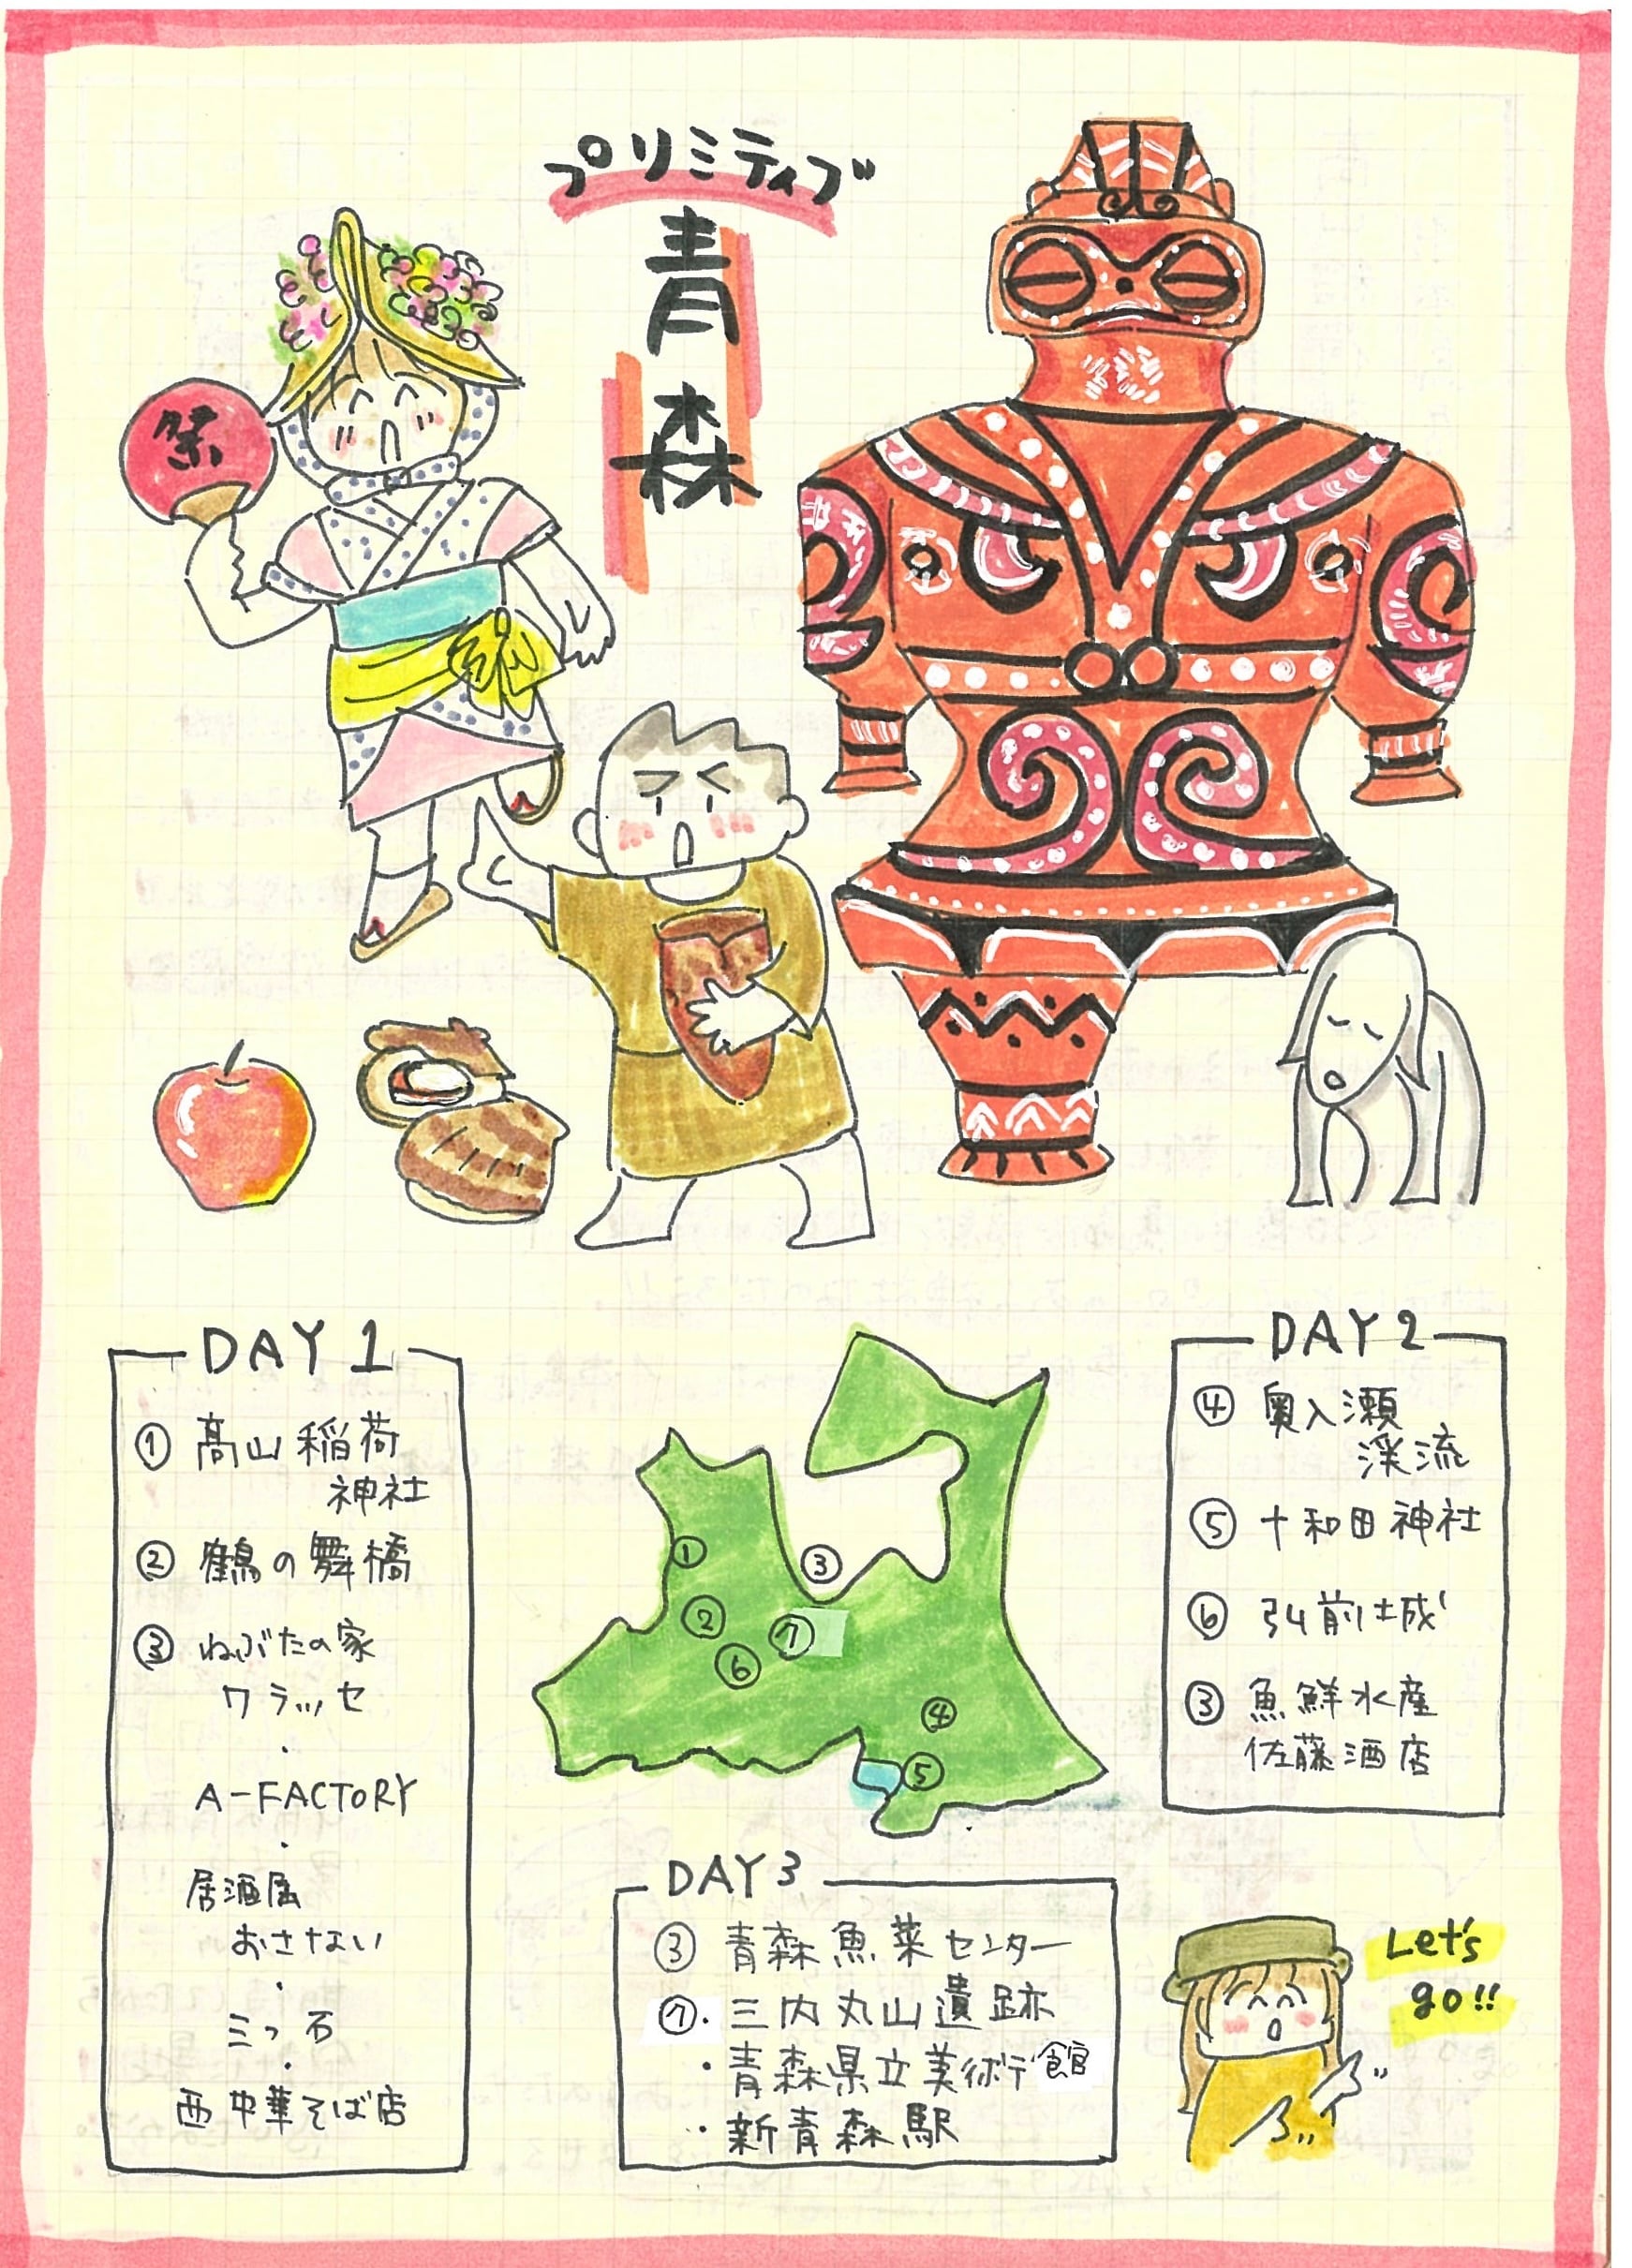 プリミティブ
青森
祭
DAY 1
① 高山稲荷
神社
② 鶴の舞橋
③ ねぶたの家
ワラッセ
・
A-FACTORY
・
居酒屋
おさない
・
三つ石
・
西中華そば店
①
②
③
⑦
⑥
④
⑤
DAY 2
④ 奥入瀬
渓流
⑤ 十和田神社
⑥ 弘前城
③ 魚鮮水産
佐藤酒店
DAY 3
③ 青森魚菜センター
⑦・三内丸山遺跡
・青森県立美術館
・新青森駅
Let's
go!!